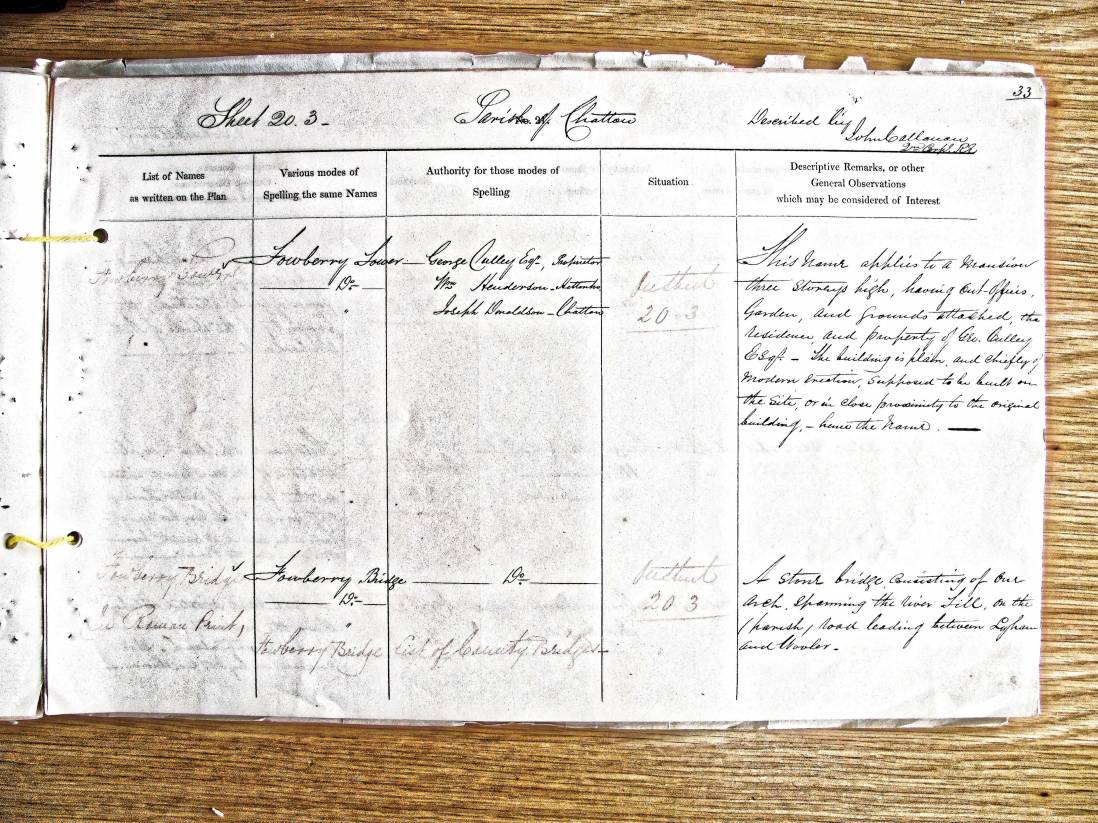 33
Sheet 20.3 - Parish of Chatton Described by
John Callanan
2nd Corpl. RE
List of Names
as written on the Plan
Various modes of
Spelling the same Names
Authority for those modes of
Spelling
Situation
Descriptive Remarks, or other
General Observations
which may be considered of Interest
Fowberry Tower
Fowberry Tower
Do
"
George Culley Esqr., Proprietor
Wm Henderson
Joseph Donaldson - Chatton
20-3
This Name applies to a Mansion
three Storeys high, having Out-Offices,
Garden, and Grounds attached, the
residence and property of Geo. Culley
Esqr. - The building is plain, and chiefly of
Modern erection, supposed to be built on
the Site, or in close proximity to the original
building, - hence the Name. —
Fowberry Bridge
in Roman Print,
Fowberry Bridge
Do
"
Fowberry Bridge
Do
List of County Bridges
20 3
A stone bridge, consisting of one
arch, spanning the river Till, on the
(parish) road leading between Lyham
and Wooler -